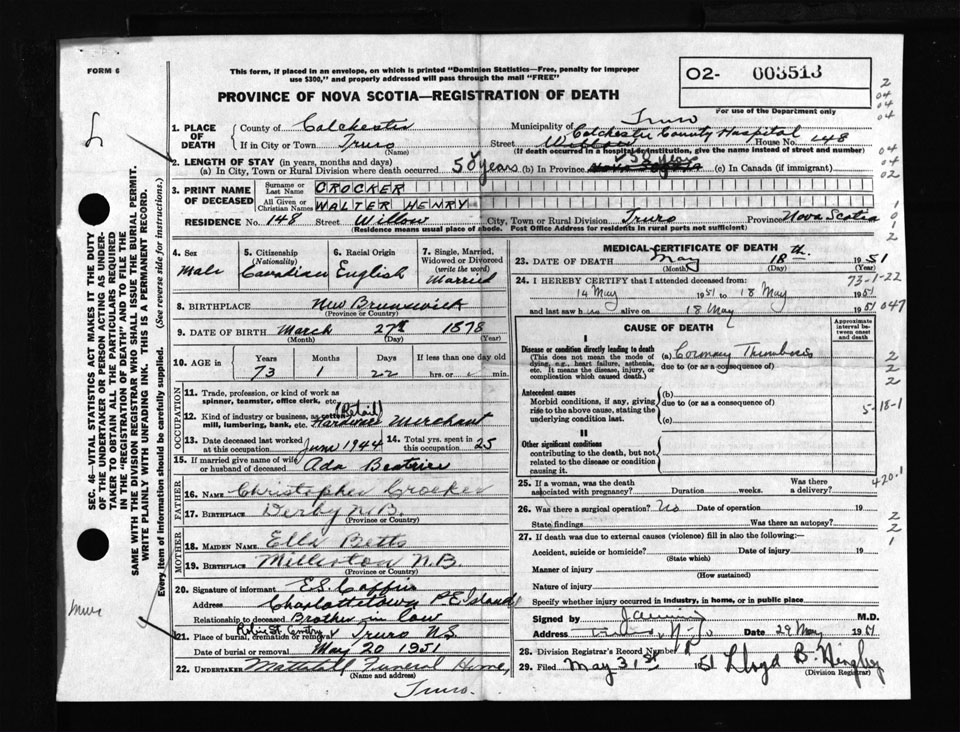 FORM 6
This form, if placed in an envelope, on which is printed "Dominion Statistics—Free, penalty for improper
use $300," and properly addressed will pass through the mail "FREE"
O2- 003513
For use of the Department only
PROVINCE OF NOVA SCOTIA—REGISTRATION OF DEATH
1. PLACE OF DEATH
County of Colchester
Municipality of Truro
If in City or Town Truro (Name)
Street Willow Colchester County Hospital House No. 148
(If death occurred in a hospital or institution, give the name instead of street and number)
2. LENGTH OF STAY (in years, months and days)
(a) In City, Town or Rural Division where death occurred 50 years (b) In Province 50 years Nova Scotia (c) In Canada (if immigrant)
3. PRINT NAME OF DECEASED
Surname or Last Name CROCKER
All Given or Christian Names WALTER HENRY
RESIDENCE No. 148 Street Willow City, Town or Rural Division Truro Province Nova Scotia
(Residence means usual place of abode. Post Office Address for residents in rural parts not sufficient)
4. Sex
Male
5. Citizenship (Nationality)
Canadian
6. Racial Origin
English
7. Single, Married, Widowed or Divorced (write the word)
Married
8. BIRTHPLACE New Brunswick
(Province or Country)
9. DATE OF BIRTH March 27th 1878
(Month) (Day) (Year)
10. AGE in Years Months Days If less than one day old
73 1 22 hrs. or min.
OCCUPATION
11. Trade, profession, or kind of work as
spinner, teamster, office clerk, etc.
12. Kind of industry or business, as cotton
mill, lumbering, bank, etc. (Retail) Hardware Merchant
13. Date deceased last worked
at this occupation June 1944
14. Total yrs. spent in
this occupation 25
15. If married give name of wife
or husband of deceased Ada Beatrice
FATHER
16. NAME Christopher Crocker
17. BIRTHPLACE Derby N.B.
(Province or Country)
MOTHER
18. MAIDEN NAME Ella Betts
19. BIRTHPLACE Millerton N.B.
(Province or Country)
20. Signature of informant E.S. Coffin
Address Charlottetown P.E. Island
Relationship to deceased Brother in law
21. Place of burial, cremation or removal Robie St Cemetry Truro N.S.
Date of burial or removal May 20 1951
22. UNDERTAKER Mattatall Funeral Home,
(Name and address)
Truro.
MEDICAL CERTIFICATE OF DEATH
23. DATE OF DEATH May 18th. 1951
(Month) (Day) (Year)
24. I HEREBY CERTIFY that I attended deceased from:
14 May 1951 to 18 May 1951
and last saw h alive on 18 May 1951
CAUSE OF DEATH
Approximate interval between onset and death
I
Disease or condition directly leading to death
(This does not mean the mode of
dying, e.g., heart failure, asthenia,
etc. It means the disease, injury, or
complication which caused death.)
(a) Coronary Thrombosis
due to (or as a consequence of)
Antecedent causes
Morbid conditions, if any, giving
rise to the above cause, stating the
underlying condition last.
(b)
due to (or as a consequence of)
(c)
II
Other significant conditions
contributing to the death, but not
related to the disease or condition
causing it.
25. If a woman, was the death
associated with pregnancy? Duration weeks. Was there
a delivery?
26. Was there a surgical operation? No Date of operation 19
State findings Was there an autopsy?
27. If death was due to external causes (violence) fill in also the following:—
Accident, suicide or homicide? Date of injury 19
(State which)
Manner of injury
(How sustained)
Nature of injury
Specify whether injury occurred in industry, in home, or in public place
Signed by M.D.
Address Date 29 May 1951
28. Division Registrar's Record Number
29. Filed May 31st 1951 Lloyd B.
(Division Registrar)
SEC. 46—VITAL STATISTICS ACT MAKES IT THE DUTY
OF THE UNDERTAKER OR PERSON ACTING AS UNDER-
TAKER TO OBTAIN ALL THE PARTICULARS REQUIRED
IN THE "REGISTRATION OF DEATH" AND TO FILE THE
SAME WITH THE DIVISION REGISTRAR WHO SHALL ISSUE THE BURIAL PERMIT.
WRITE PLAINLY WITH UNFADING INK. THIS IS A PERMANENT RECORD.
Every item of information should be carefully supplied. (See reverse side for instructions.)
2
04
04
04
04
04
02
1
0
1
2
73-1-22
047
2
2
2
5-18-1
420.1
2
2
1